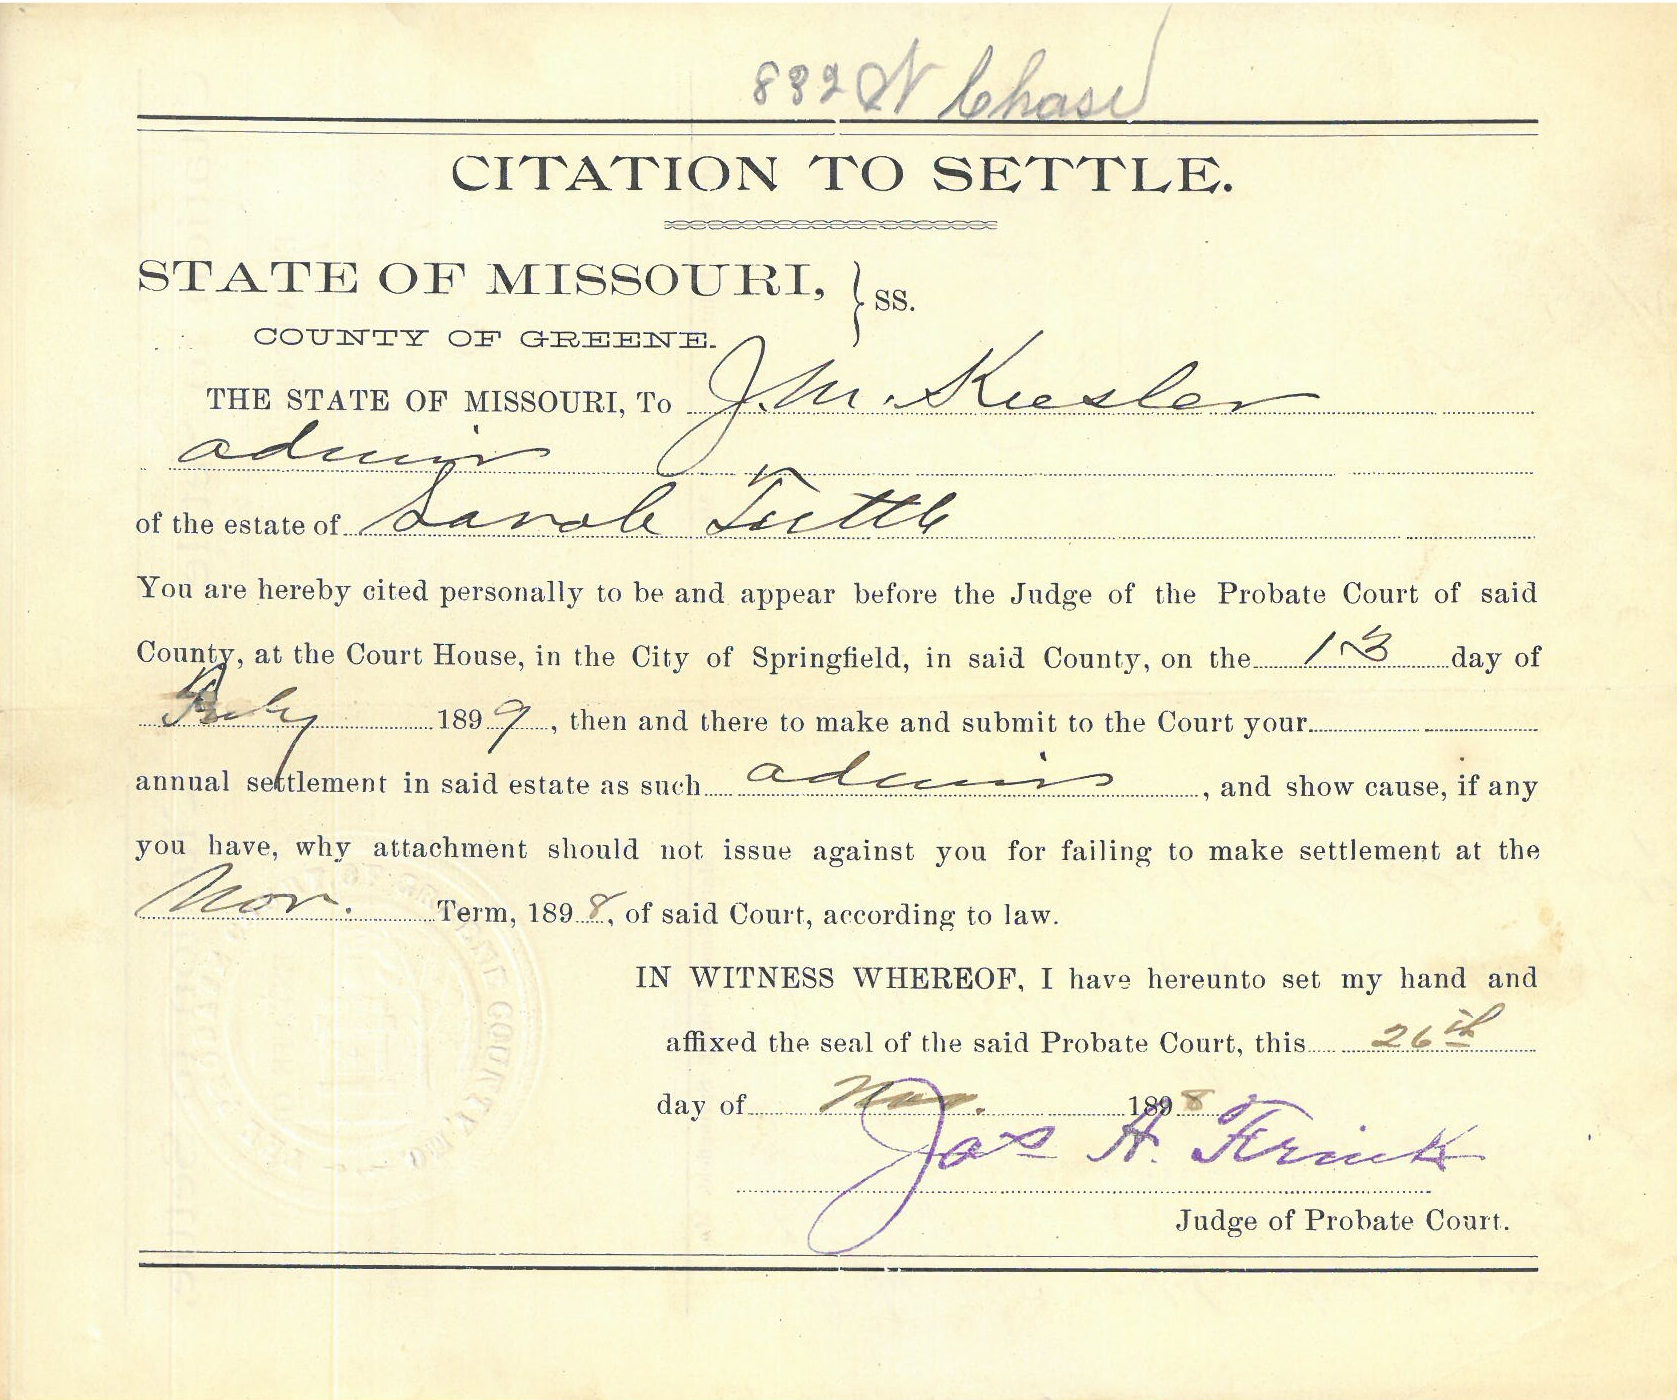 832 N Chase
CITATION TO SETTLE.
STATE OF MISSOURI, } SS.
COUNTY OF GREENE.
THE STATE OF MISSOURI, To J. M. Keesler
admr
of the estate of Sarah Tuttle
You are hereby cited personally to be and appear before the Judge of the Probate Court of said
County, at the Court House, in the City of Springfield, in said County, on the 13 day of
Feby 1899, then and there to make and submit to the Court your
annual settlement in said estate as such admr, and show cause, if any
you have, why attachment should not issue against you for failing to make settlement at the
Nov. Term, 1898, of said Court, according to law.
IN WITNESS WHEREOF, I have hereunto set my hand and
affixed the seal of the said Probate Court, this 26th
day of Nov. 1898
Jas A. Frink
Judge of Probate Court.